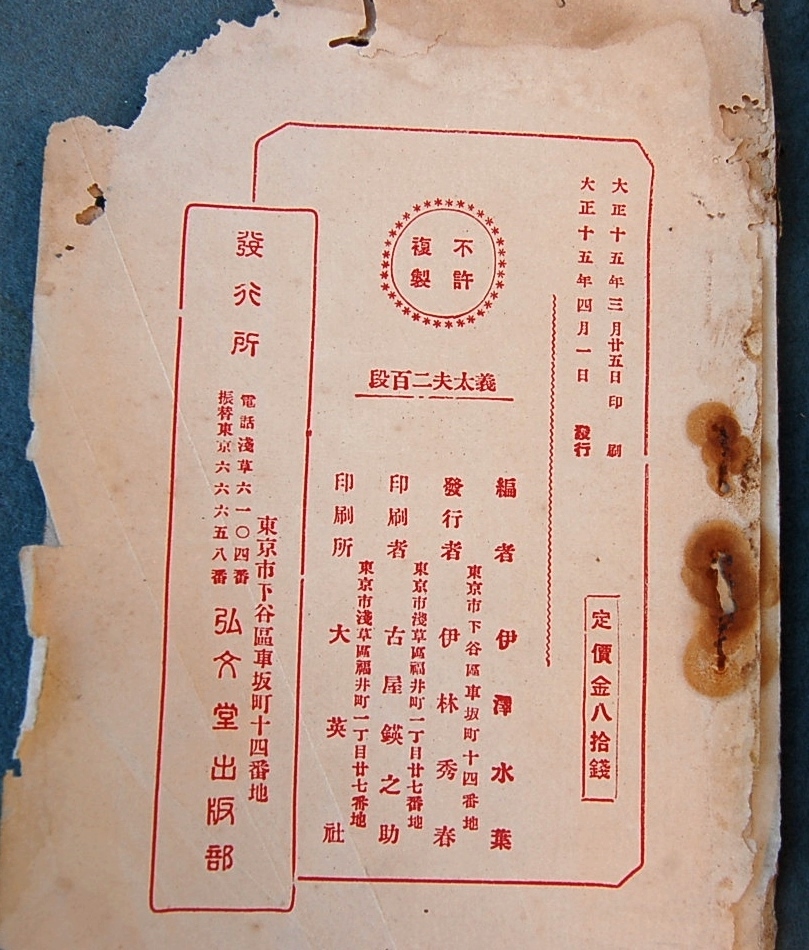 大正十五年三月廿五日印刷
大正十五年四月一日發行
定價金八拾錢
不許
複製
義太夫二百段
編者 伊澤水葉
東京市下谷區車坂町十四番地
發行者 伊林秀春
東京市淺草區福井町一丁目廿七番地
印刷者 古屋鍈之助
東京市淺草區福井町一丁目廿七番地
印刷所 大英社
發行所
東京市下谷區車坂町十四番地
弘文堂出版部
電話淺草六一〇四番
振替東京六六六五八番